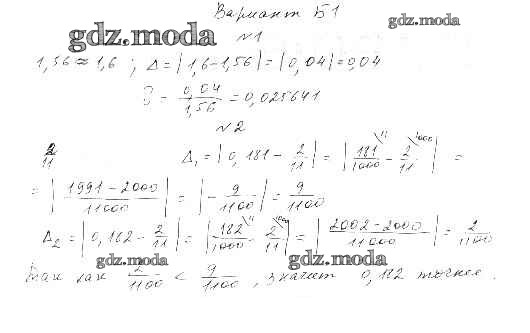 Вариант Б1
gdz.moda
gdz.moda
№1
1,56 ≈ 1,6 ; Δ = |1,6 - 1,56| = |0,04| = 0,04
δ = 0,04/1,56 = 0,025641
№2
2/11 Δ₁ = |0,181 - 2/11| = |181/1000 - 2/11| =
= |1991 - 2000/11000| = |- 9/1100| = 9/1100
Δ₂ = |0,182 - 2/11| = |182/1000 - 2/11| = |2002 - 2000/11000| = 2/1100
Так как 2/1100 < 9/1100, значит 0,182 точнее.
gdz.moda
gdz.moda